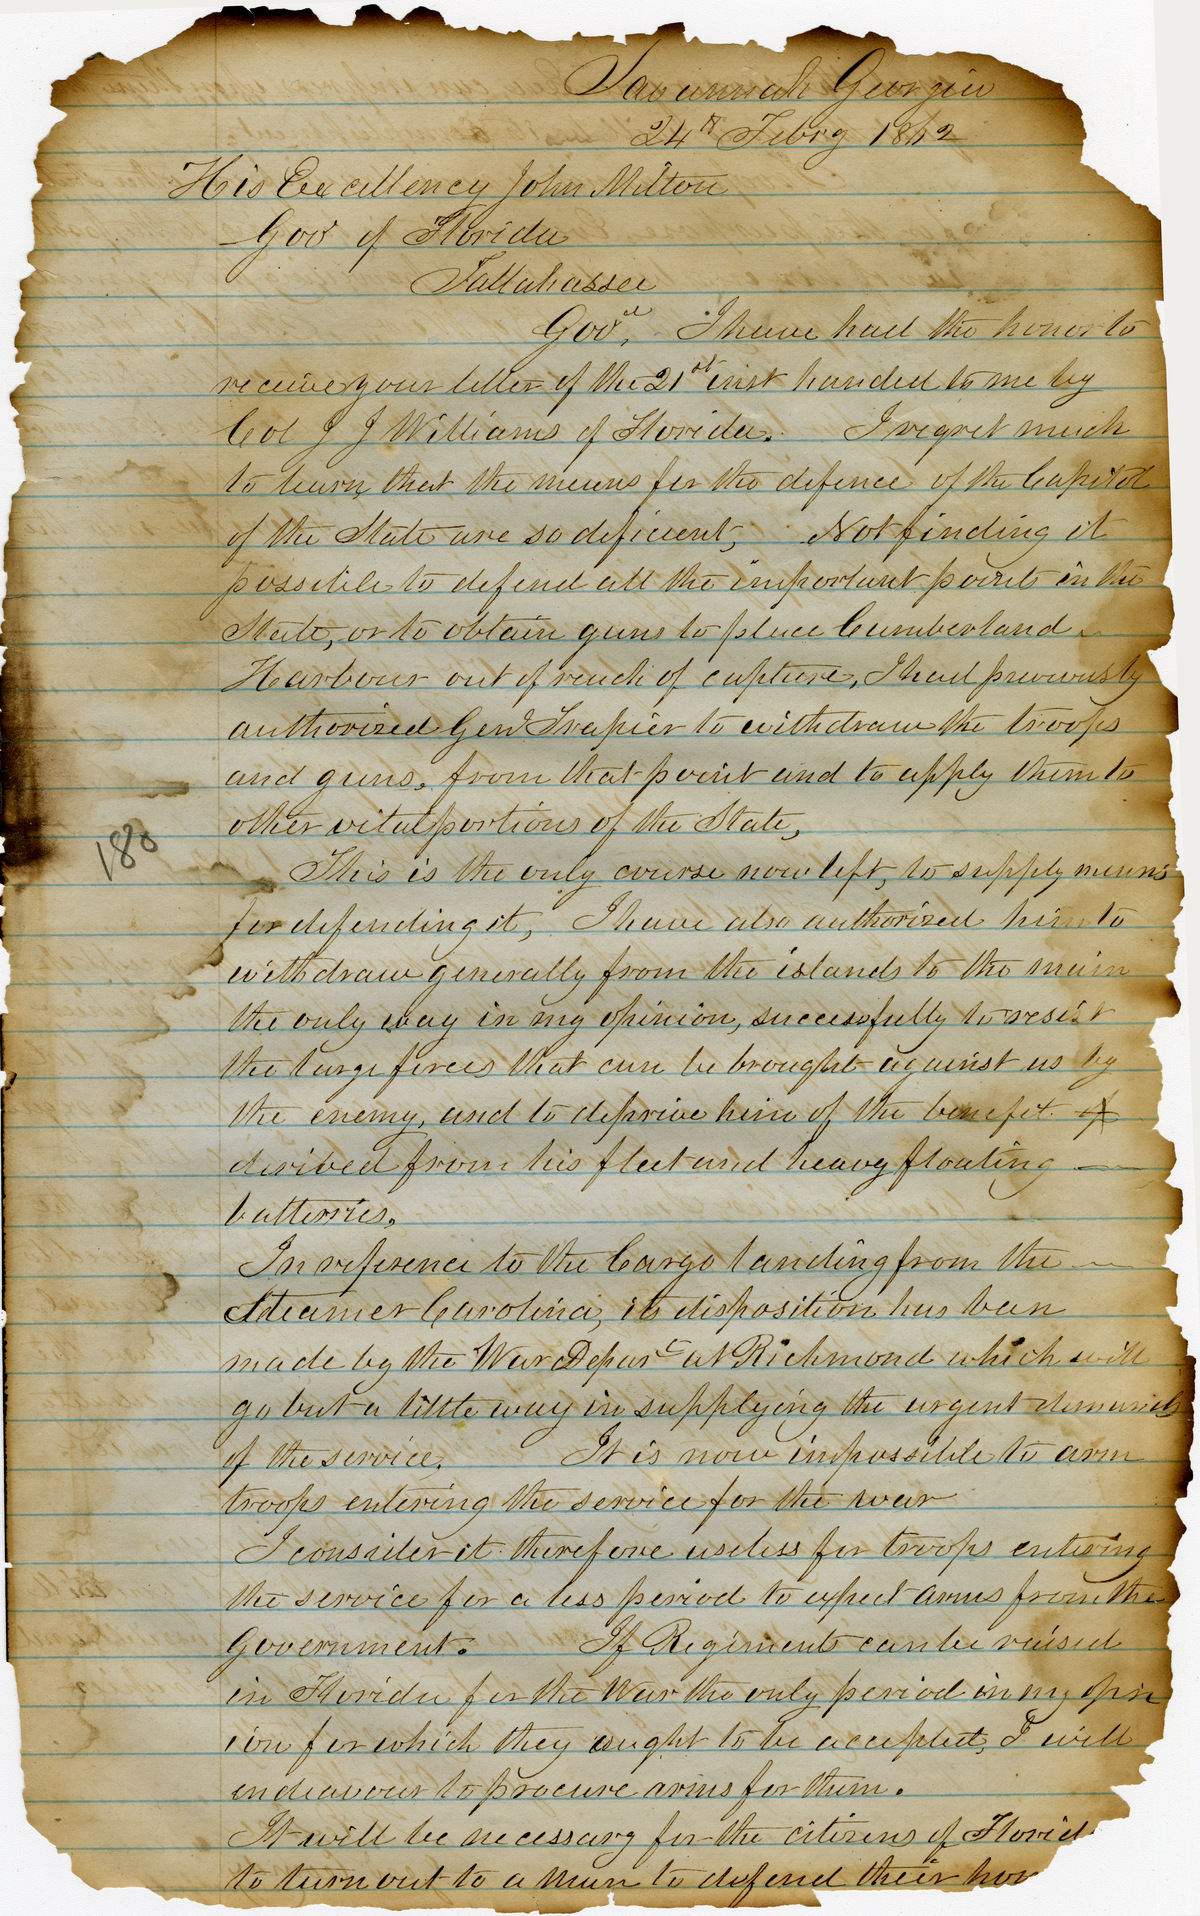 Savannah Georgia
24th Febry 1862
His Excellency John Milton
Govr of Florida
Tallahassee
Govr, I have had the honor to
receive your letter of the 21st inst handed to me by
Col J J Williams of Florida. I regret much
to learn that the means for the defence of the Capitol
of the State are so deficient, Not finding it
possible to defend all the important points in the
State, or to obtain guns to place Cumberland
Harbour out of reach of capture, I had previously
authorized Genl Trapier to withdraw the troops
and guns, from that point and to apply them to
other vital portions of the State,
188
This is the only course now left, to supply means
for defending it, I have also authorized him to
withdraw generally from the islands to the main
the only way in my opinion, successfully to resist
the large forces that can be brought against us by
the enemy, and to deprive him of the benefit of
derived from his fleet and heavy floating
batteries.
In reference to the Cargo landing from the
Steamer Carolina, its disposition has been
made by the War Depart at Richmond which will
go but a little way in supplying the urgent demands
of the service. It is now impossible to arm
troops entering the service for the war
I consider it therefore useless for troops entering
the service for a less period to expect arms from the
Government. If Regiments can be raised
in Florida for the War the only period in my opin
ion for which they ought to be accepted, I will
endeavour to procure arms for them.
It will be necessary for the citizens of Florid
to turn out to a man to defend their hom